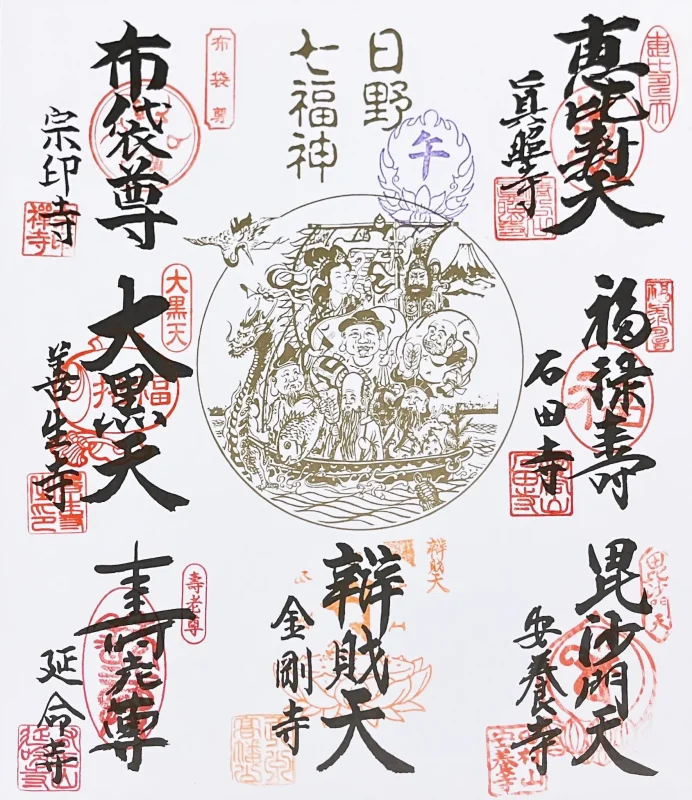 日野
七福神
午
恵比寿天
真照寺
福禄寿
石田寺
毘沙門天
安養寺
辯財天
辯財天
金剛寺
布袋尊
布袋尊
宗印寺
禅寺
大黒天
大黒天
善生寺
福
壽老尊
壽老尊
延命寺